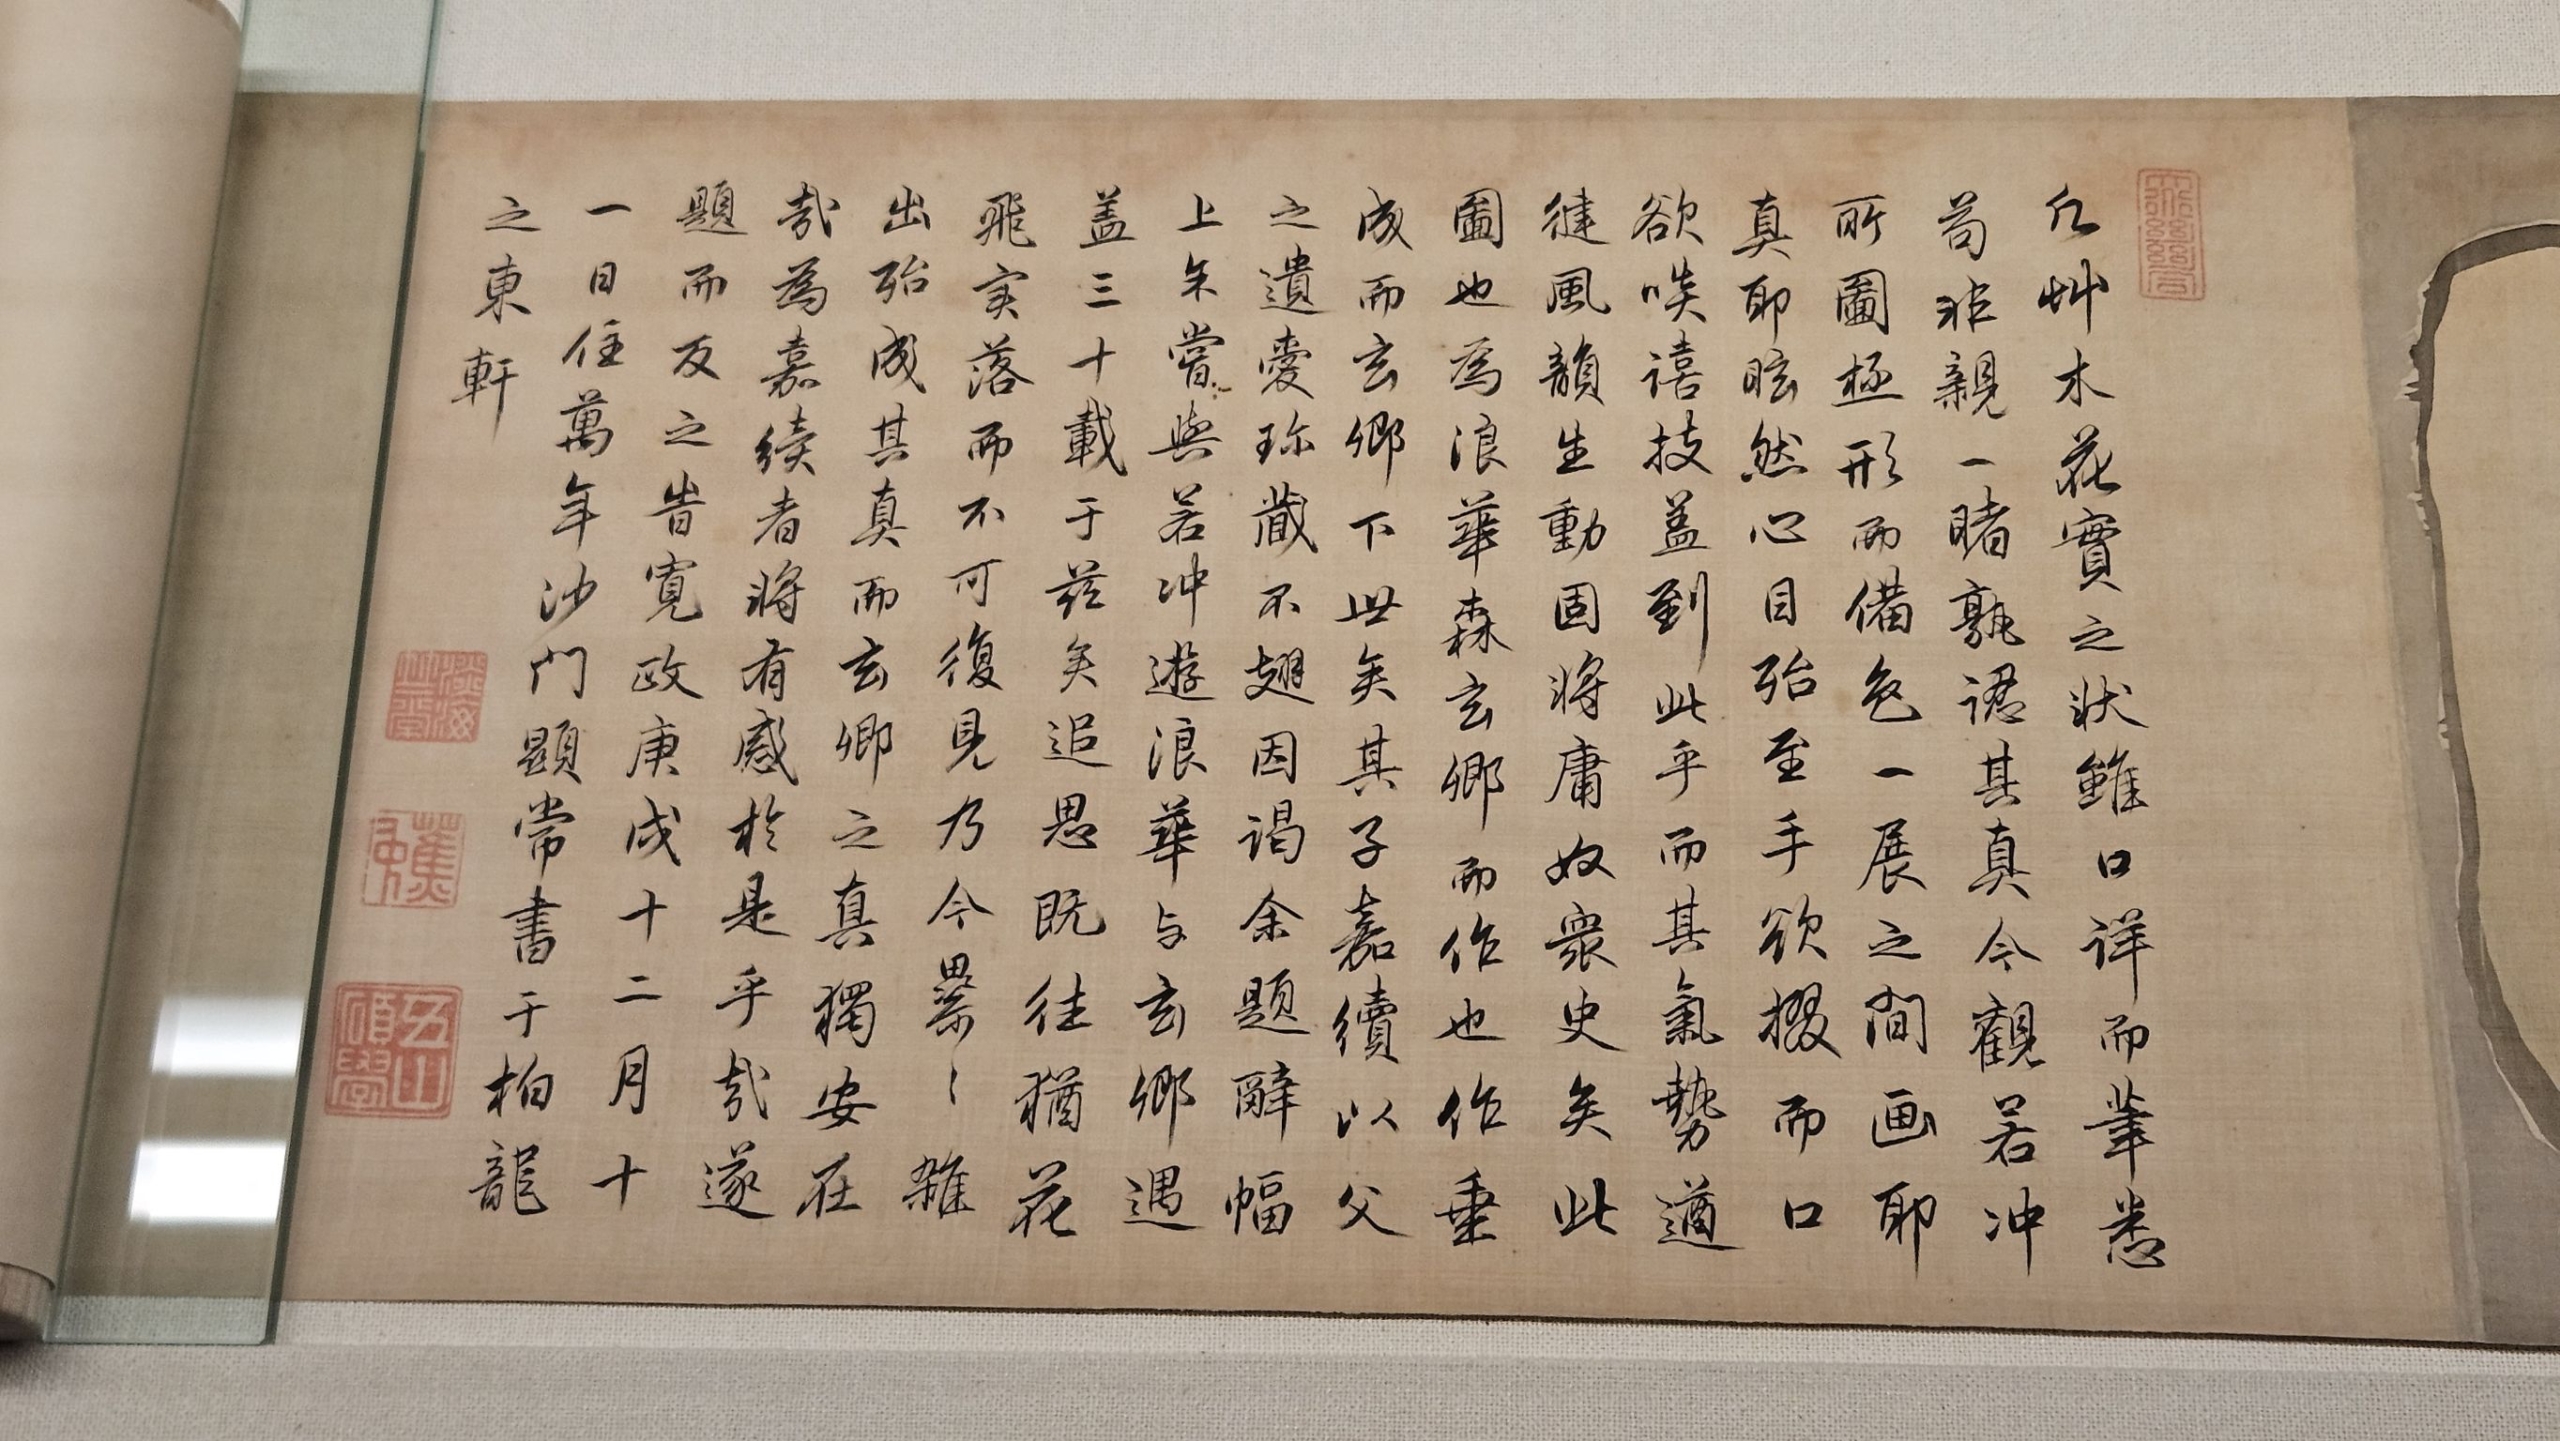 凢艸木花實之狀雖口詳而筆悉
苟非親一睹孰認其真今觀若冲
所圖極形而備色一展之間画耶
真耶眩然心目殆至手欲掇而口
欲啖譆技盖到此乎而其氣勢遒
健風韻生動固將庸奴衆史矣此
圖也為浪華森玄郷而作也作垂
成而玄郷下世矣其子嘉續以父
之遺愛珎藏不翅因謁余題辭幅
上余嘗與若冲遊浪華与玄郷遇
盖三十載于兹矣追思既往猶花
飛実落而不可復見乃今累〻雜
出殆成其真而玄郷之真獨安在
哉為嘉續者將有感於是乎哉遂
題而反之旹寛政庚戌十二月十
一日住萬年沙門顕常書于柏龍
之東軒
淡海
竺常
蕉中
五山
碩學